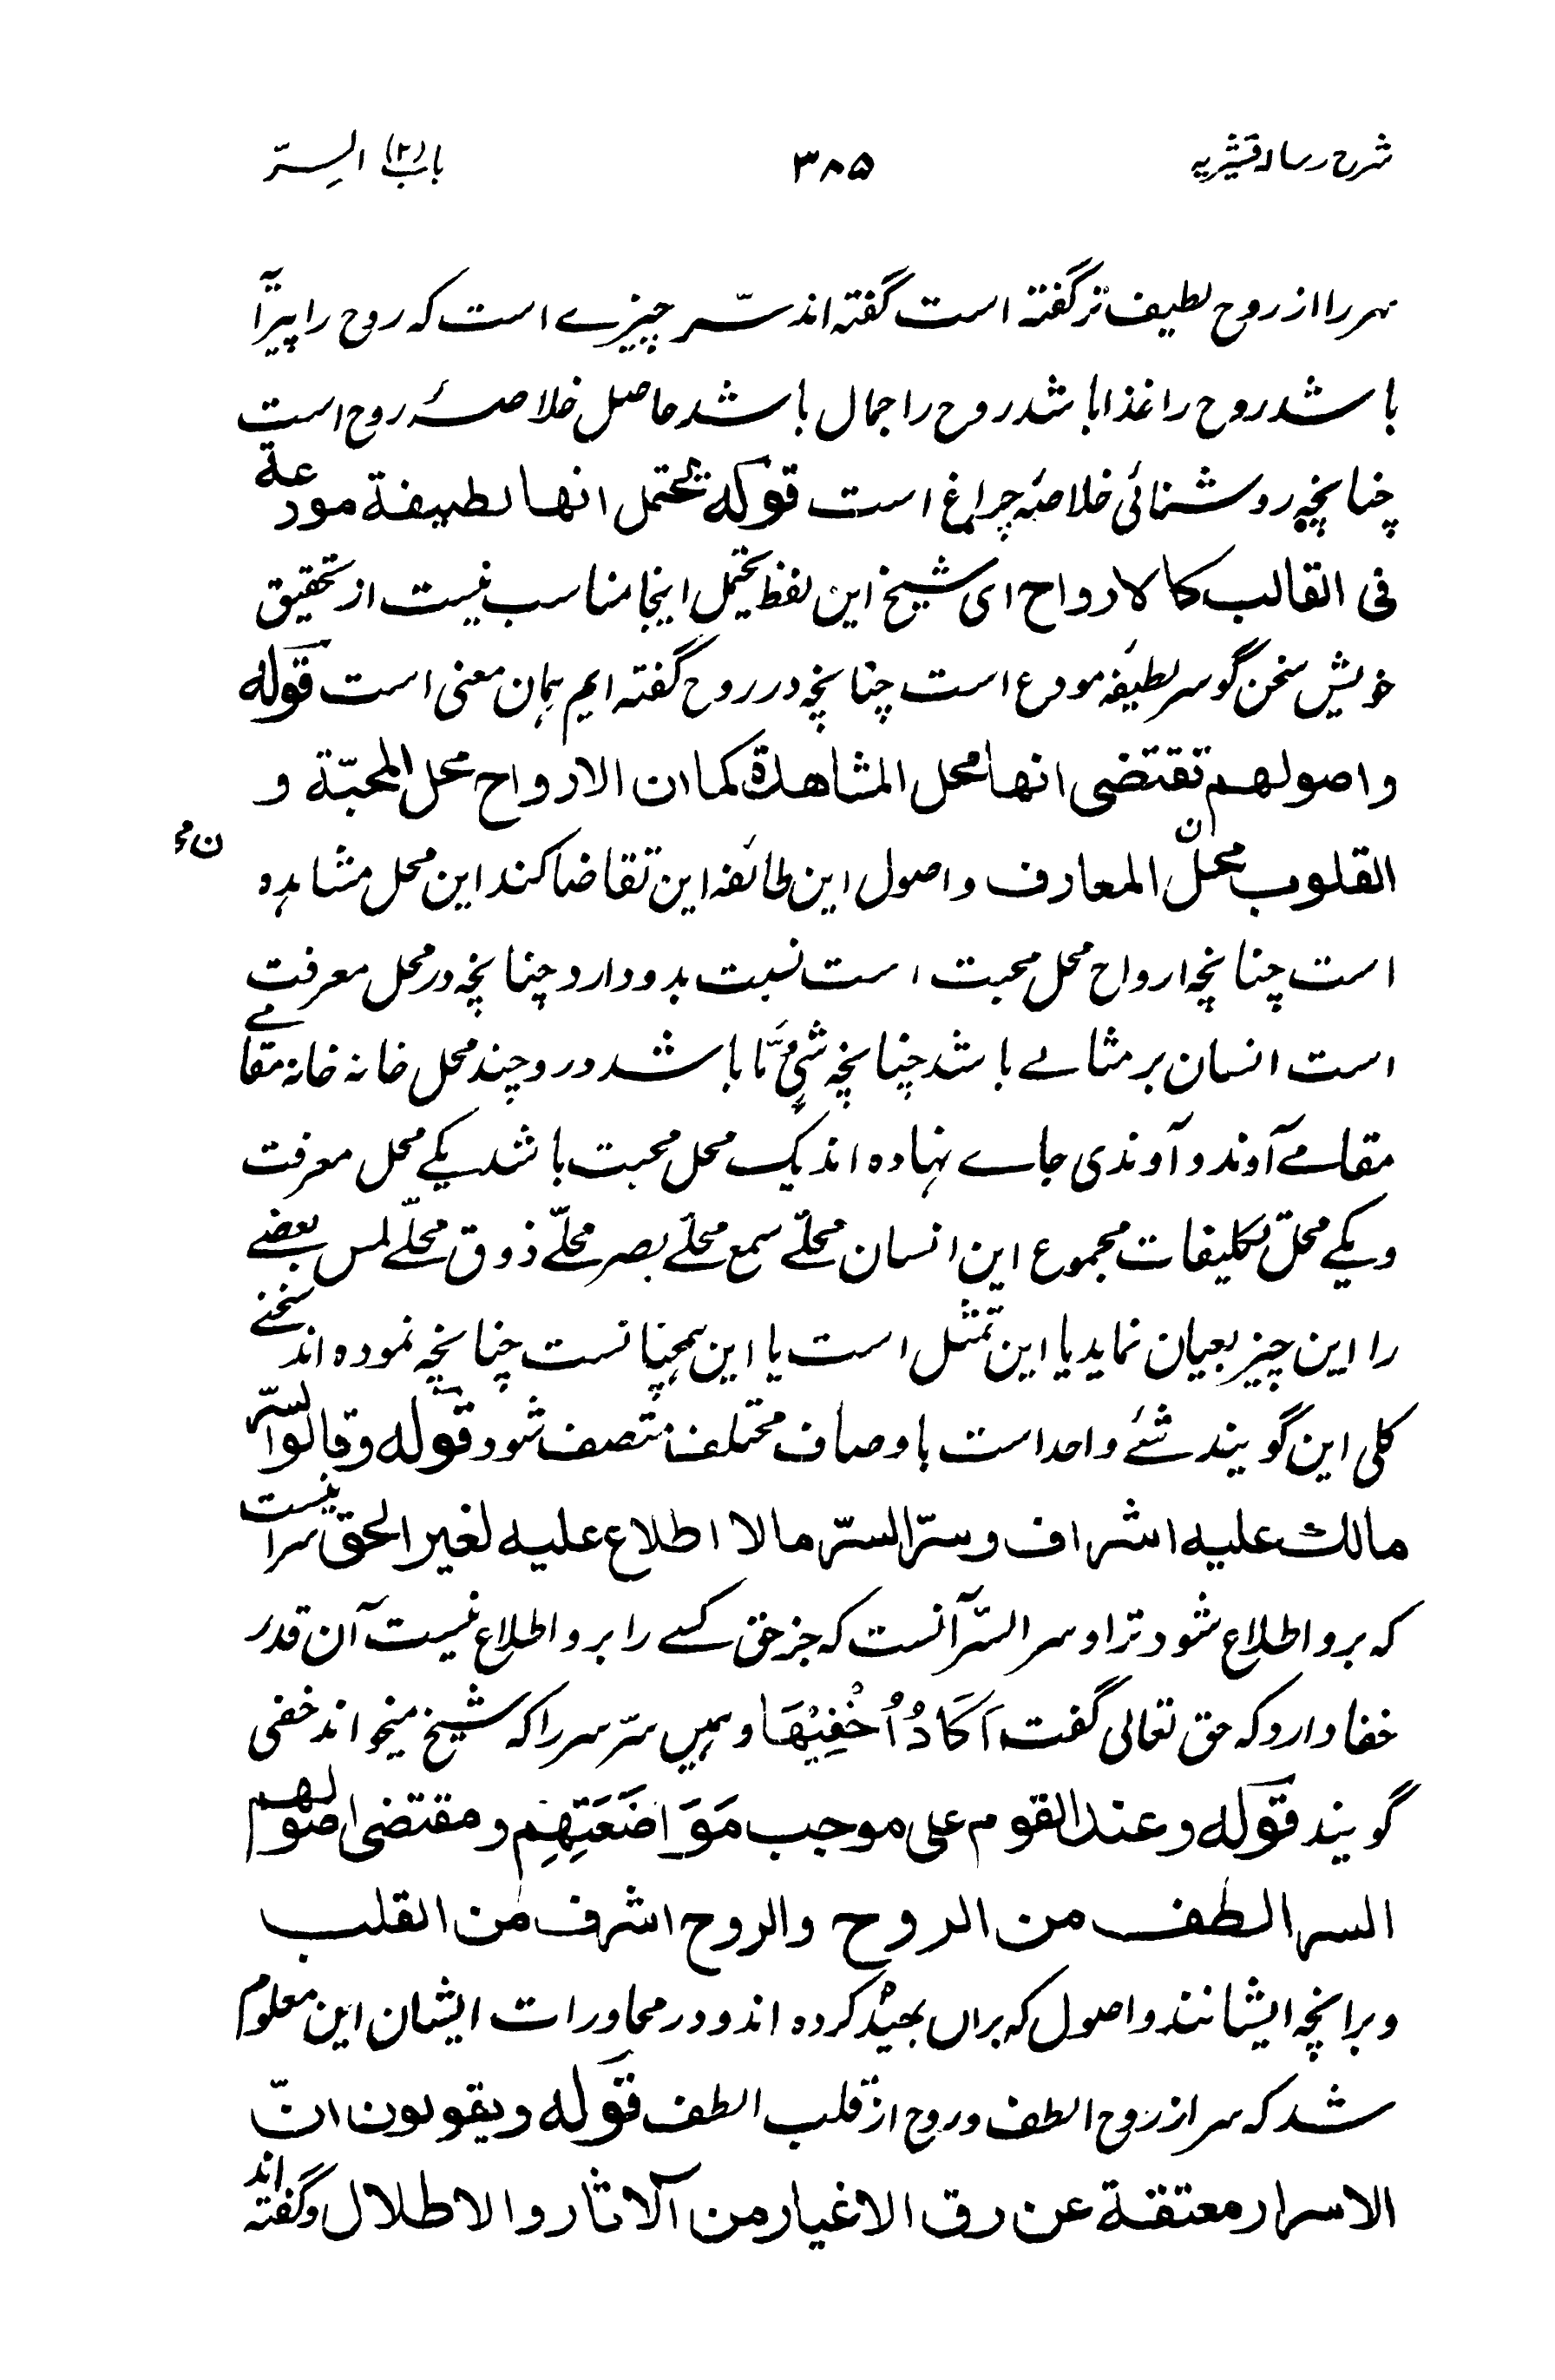 شرح رساله قشیریه ۳۸۵ باب (۲) السِرّ
سر را از روح لطیف تر گفته است گفته اند سّر چیزے است که روح را پیرآ
باشد روح را غذا باشد روح را جمال باشد حاصل خلاصۂ روح است
چنانچہ روشنائی خلاصۂ چراغ است قولہ تحتمل انها لطیفة مودعة
فی القالب کالارواح ای شیخ این لفظ یحتمل اینجا مناسب نیست از تحقیق
خویش سخن گو سر لطیفۂ مودع است چنانچہ در روح گفته ایم ہمان معنی است قولہ
واصولهم تقتضی انها محل المشاهدة کما ان الارواح محل المحبّة و
القلوب محلّ المعارف و اصول این طائفہ این تقاضا کند این محل مشاہدہ
است چنانچہ ارواح محل محبت است نسبت بدو دارد چنانچہ در محل معرفت
است انسان بر مثالے باشد چنانچہ شیٔ مّا باشد درو چند محل خانہ خانہ مقامے
مقامے آوند و آوندی جاے نہادہ اند یک محل محبت باشد یکے محل معرفت
و یکے محلّ تکلیفات مجموع این انسان محلّے سمع محلّے بصر محلّے ذوق محلّے لمس بعضے
را این چیز بعیان نماید یا این تمثل است یا این ہمچنانست چنانچہ نمودہ اند سخنے
کلی این گویند شئے واحد است باوصاف مختلف متصف شود قولہ وقالوا السّر
مالك علیه اشراف وسرّ السرّ ما لا اطلاع علیه لغیر الحق سرّ آنیست
کہ برو اطلاع شود ترا و سر السّر آنست کہ جز حق کسے را برو اطلاع نیست آن قدر
خفا دارد کہ حق تعالی گفت اَکَادُ اُخْفِیْهَا و ہمیں سرّ سر را کہ شیخ میخواند خفی
گویند قولہ وعند القوم علی موجب مَوَاضَعَتِهِم ومقتضی اصولهم
السر الطف من الروح والروح اشرف من القلب
و برانچہ ایشانند و اصول کہ براں کردہ اند و در محاورات ایشان این معلوم
شد کہ سر از روح الطف و روح از قلب الطف قولہ ویقولون انّ
الاسرار معتقة عن رق الاغیار من الآثار والاطلال وگفتہ اند